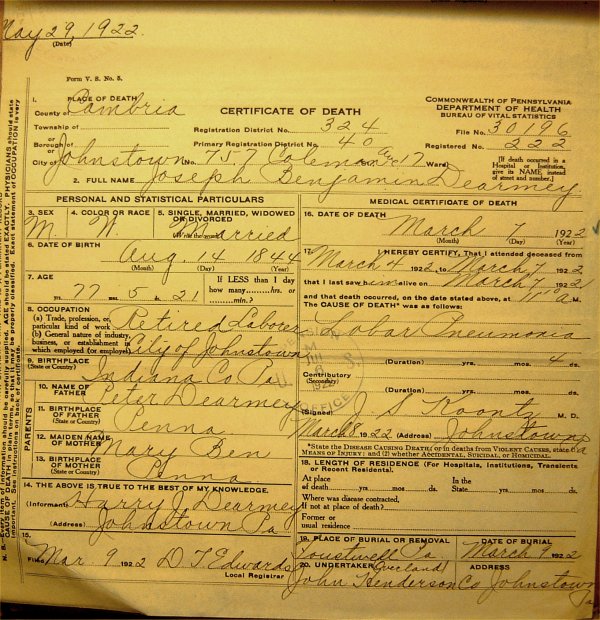 May 29, 1922.
(Date)
Form V. S. No. 5.
1. PLACE OF DEATH
County of Cambria
CERTIFICATE OF DEATH
COMMONWEALTH OF PENNSYLVANIA
DEPARTMENT OF HEALTH
BUREAU OF VITAL STATISTICS
Township of
or
Borough of
or
City of Johnstown
Registration District No. 324
Primary Registration District No. 40
File No. 30196
Registered No. 222
No. 757 Coleman Ave 17 Ward)
[If death occurred in a Hospital or Institution, give its NAME, instead of street and number.]
2. FULL NAME Joseph Benjamin Dearmey
PERSONAL AND STATISTICAL PARTICULARS
3. SEX
M.
4. COLOR OR RACE
W.
5. SINGLE, MARRIED, WIDOWED
OR DIVORCED
(Write the word)
Married
6. DATE OF BIRTH
Aug. 14 1844
(Month) (Day) (Year)
7. AGE
77 yrs. 5 mos. 21
If LESS than 1 day
how many hrs. or
min.?
8. OCCUPATION
(a) Trade, profession, or
particular kind of work Retired Laborer
(b) General nature of industry,
business, or establishment in
which employed (or employer) City of Johnstown
9. BIRTHPLACE
(State or Country) Indiana Co Pa
PARENTS
10. NAME OF
FATHER Peter Dearmey
11. BIRTHPLACE
OF FATHER
(State or Country) Penna
12. MAIDEN NAME
OF MOTHER Mary Ben
13. BIRTHPLACE
OF MOTHER
(State or Country) Penna
14. THE ABOVE IS TRUE TO THE BEST OF MY KNOWLEDGE.
(Informant) Harry J Dearmey
(Address) Johnstown Pa
15.
Filed Mar 9 1922 D T Edwards
Local Registrar
MEDICAL CERTIFICATE OF DEATH
16. DATE OF DEATH
March 7 1922
(Month) (Day) (Year)
17. I HEREBY CERTIFY, That I attended deceased from
March 4 1922, to March 7 1922
that I last saw him alive on March 7 1922
and that death occurred, on the date stated above, at 11 a M.
The CAUSE OF DEATH* was as follows:
Lobar Pneumonia
(Duration) yrs. mos. 4 ds.
Contributory
(Secondary)
(Duration) yrs. mos. ds.
(Signed) J. S. Koontz M. D.
March 8 1922 (Address) Johnstown Pa
*State the DISEASE CAUSING DEATH; or in deaths from VIOLENT CAUSES, state
MEANS OF INJURY; and (2) whether ACCIDENTAL, SUICIDAL, or HOMICIDAL.
18. LENGTH OF RESIDENCE (For Hospitals, Institutions, Transients
or Recent Residents).
At place
of death yrs. mos. ds.
In the
State yrs. mos. ds.
Where was disease contracted,
If not at place of death?
Former or
usual residence
19. PLACE OF BURIAL OR REMOVAL
Pa
DATE OF BURIAL
March 9 1922
20. UNDERTAKER (Overland)
John Henderson Co
ADDRESS
Johnstown
Pa